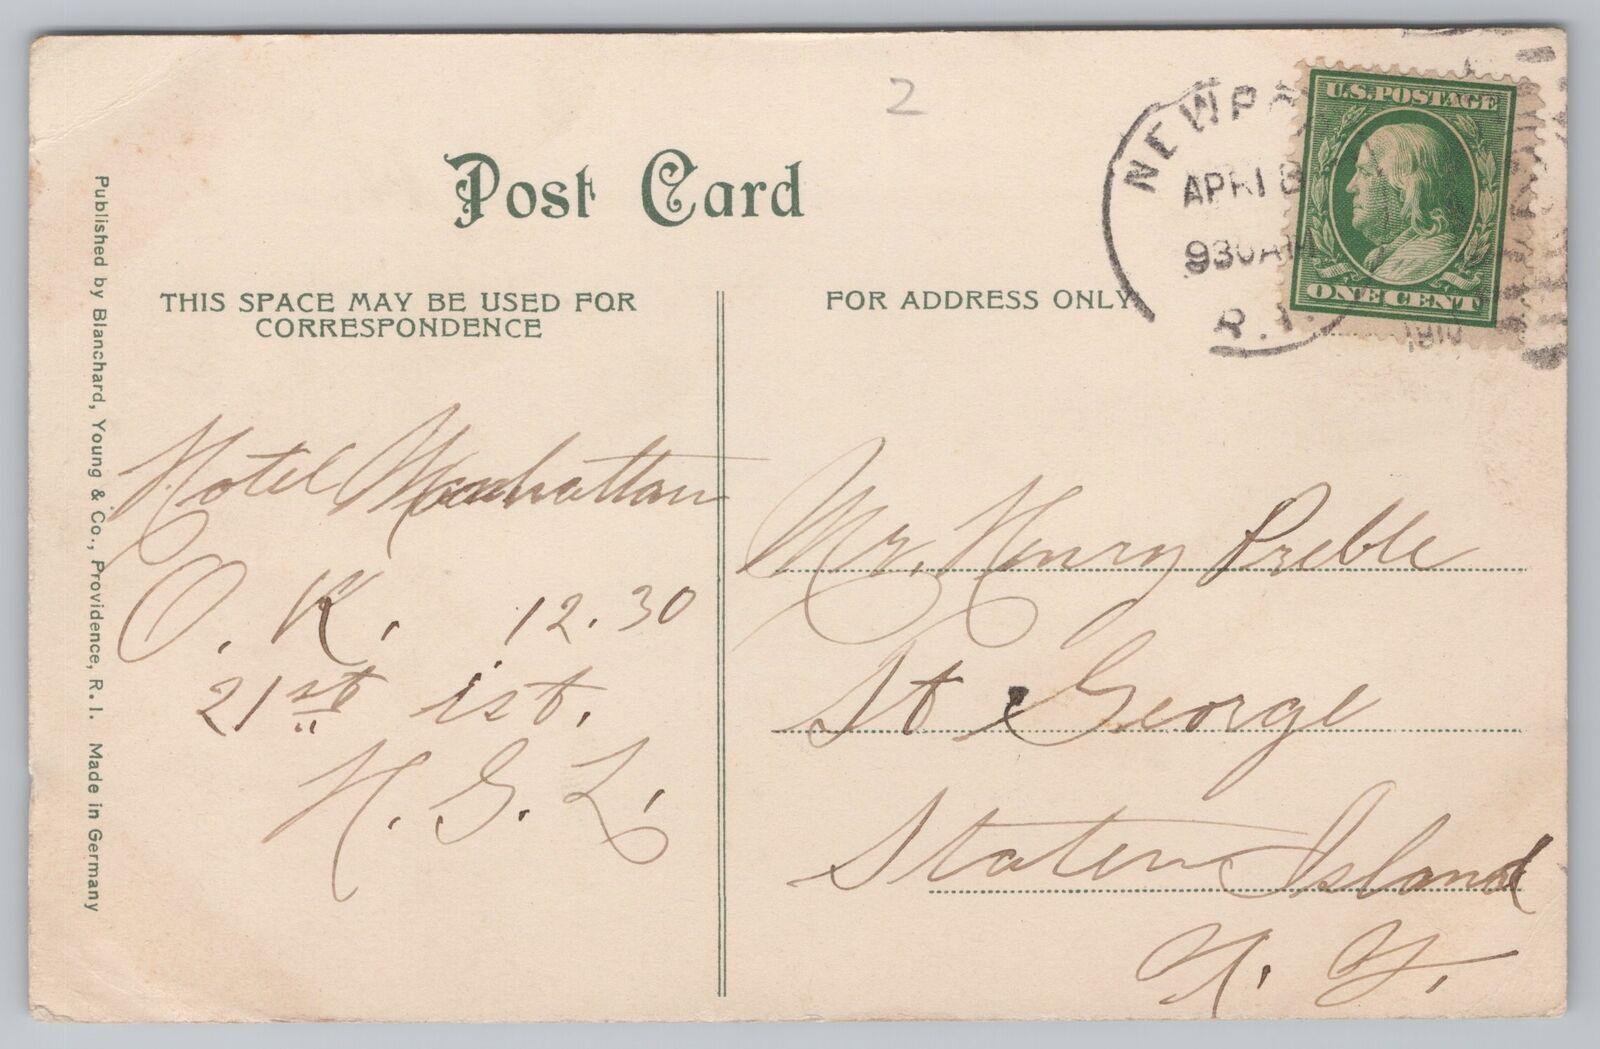 2
Post Card
THIS SPACE MAY BE USED FOR
CORRESPONDENCE
FOR ADDRESS ONLY
Published by Blanchard, Young & Co., Providence, R. I. Made in Germany
U.S. POSTAGE
ONE CENT
APR 18
930 AM
R. I.
Hotel Manhattan
O. K. 12.30
21st ist.
H. G. L.
Mr. Henry Preble
St George
Staten Island
N. Y.